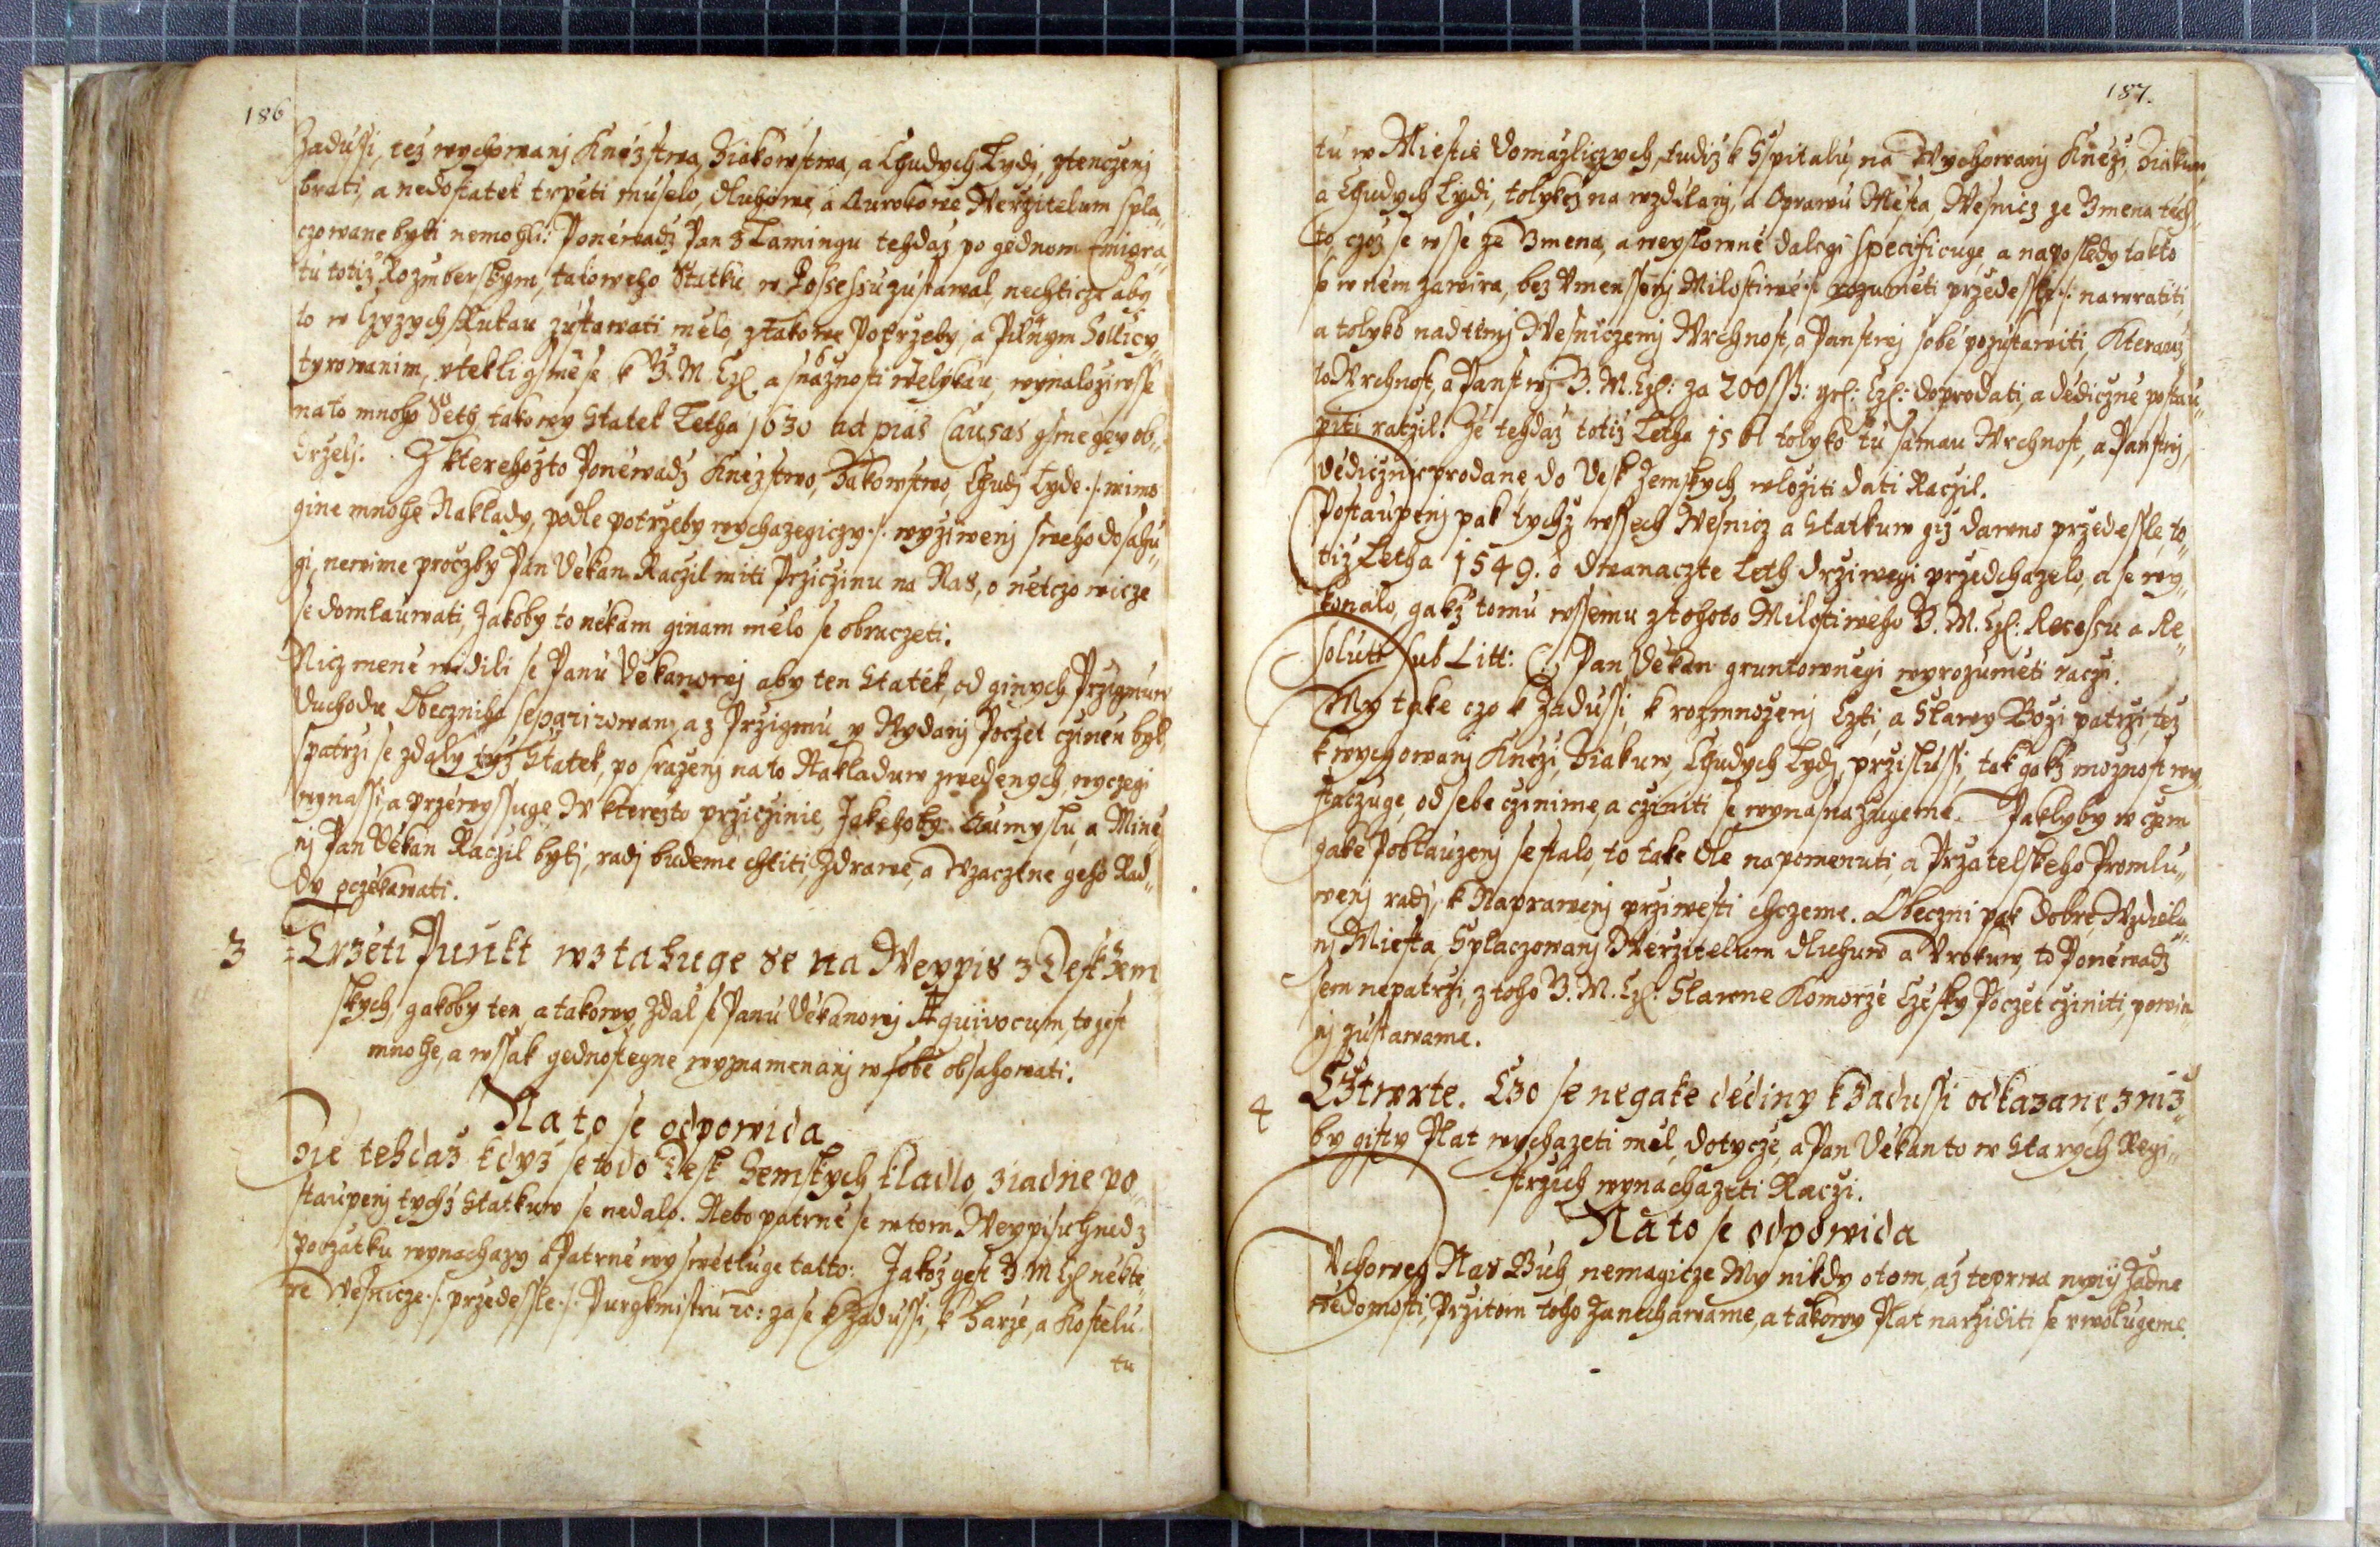 186
Zadussi, tez wychowanj Knězstwa, Žiakowstwa, a Chudych Lydj, ztenczenj
brati, a nedostatek trpěti muselo, dluhowe, a Aurokowe Weržitelum spla„
czowane byti nemohli: Poněwadž Pan z Lamingu tehdaž po gednom Emigra„
tu totiž Rozmberskym, takoweho Statku w Possessu zustawal, nechticze aby
to w Czyzych Rukau zustawati mělo, z takowe Potrzeby, a Pilnym Sollicy„
tyrowanim, vtekli gsme se k J. M. Czs. a snažnosti welykau, wynaložiwsse
na to mnoho Set, takowy Statek Letha 1630 ad pias Causas gsme gey ob„
drželj. Z kterehožto Poněwadž Knězstwo, Žakowstwo, Chudj Lyde ./. mimo
gine mnohe Naklady, podle potrzeby wychazegiczy ./. wyžiwenj sweho dosahu„
gi, newime proczby Pan Děkan Raczil miti Przicžinu na Nas, o nětczo wicze
se domlauwati, Jakoby to někam ginam mělo se obraczeti.
Nicz meně widili se Panu Děkanowj aby ten Statek, od ginych Przigmuw
Duchodu Obeczniho separirowan, a z Przigmu y Wydanj Poczet cziněn byl,
spatrzi se zdaly tyž Statek, po sraženj na to Nakladuw zwedenych, wyczegi
wynassi, a przewyssuge, W kterezto przicžinie, Jakehoby Aumyslu, a Mině„
nj Pan Děkan Raczil bytj, radj budeme chtiti Zdrawe, a Wzaczne geho Rad„
dy oczekawati.
3 Trzeti Punkt wztahuge se na Weypis z Desk Zem
skych, gakoby ten a takowy zdal se Panu Děkanowj Æquivocum, to gest
mnohe, a wssak gednostegne wyznamenanj w sobě obsahowati.
Na to se odpowida
Zie tehdaž když se to do Desk Zemskych kladlo, ziadne po„
staupenj tychž Statkuw se nedalo. Nebo patrně se w tom Weypisu hned z
poczatku wynachazy a Patrně wyswětluge takto: Jakož gest J. M. Czs. někte„
re Wesnicze ./. przedessle ./. Purgkmistru ꝛc: zase k Zadussi, k Farze, a Kostelu
tu
187.
tu w Miestie Domazliczych, tudiz k Sspitalu, na Wychowanj Kněžj, Žiakuw,
a Chudych Lydi, tolykež na wzdělanj, a Oprawu Města Wesnicz ze Jmena těch„
to, czož se wsse ze Jmena, a weyslowně dalegi specificuge, a naposledy takto
se w něm zawira, bez Vmenssenj Milostiwě ./. rozuměti przedessle ./. nawratiti,
a tolyko nad těmj Wesniczemj Wrchnost, a Panstwj sobě pozustawiti, Kteraus„
to Wrchnost, a Panstwj J. M. Czs: za 200 ßß: grs: Czs: doprodati, a dědicznie postau„
piti raczil. Že tehdaž totiž Letha 1561 tolyko tu samau Wrchnost, a Panstwj,
dědicznie prodane, do Desk Zemskych wložiti dati Raczil.
Postaupenj pak tychž wssech Wesnicz a Statkuw giz dawno przedessle, to„
tiz Letha 1549. o dwanaczte Leth drziwegi przedchazelo, a se wy„
konalo, gakž tomu wssemu z tohoto Milostiweho J. M. Czs: Recessu a Re„
soluti Sub Litt: C: Pan Děkan gruntownegi wyrozuměti raczi.
My take czo k Zadussi, k rozmnoženj Czti, a Slawy Boži patrži, tez
k wychowanj Kněži, Žiakuw, Chudych Lydj, przislussi, tak gakž možnost wy„
staczuge, od sebe czinime, a cziniti se wynasnažugeme. Paklyby w czem
gake Poblauzenj se stalo, to take dle napomenuti, a Przatelskeho Promlu„
wenj radj, k Naprawenj prziwesti chczeme. Obeczni pak dobre, Wzdiela„
nj Miesta, Splaczowanj Weržitelum dluhuw a Vrokuw, to Poněwadž
sem nepatrži, z toho J. M. Czs: Slawne Komorze Czesky Poczet cziniti, powin„
nj zustawame.
4 Cztwrte. Czo se negake dědiny k Zadussi odkazane, z niž„
by gisty Plat wychazeti měl, dotycze, a Pan Děkan to w Starych Regi„
strzich wynachazeti Raczi.
Na to se odpowida
Vchowey Nas Buh, nemagicze My nikdy o tom, až teprwa nynj žadne
wědomosti, Przitom toho Zanechawame, a takowy Plat narziditi se vwolugeme.